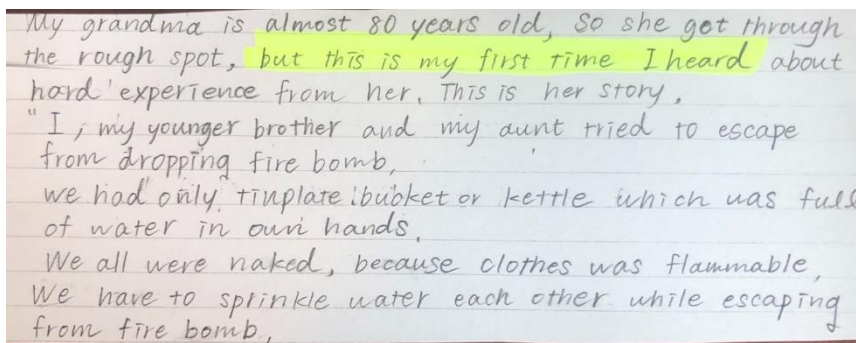 My grandma is almost 80 years old, so she got through
the rough spot, but this is my first time I heard about
hard experience from her. This is her story.
"I, my younger brother and my aunt tried to escape
from dropping fire bomb,
we had only tinplate bucket or kettle which was full
of water in our hands.
We all were naked, because clothes was flammable,
We have to sprinkle water each other while escaping
from fire bomb,